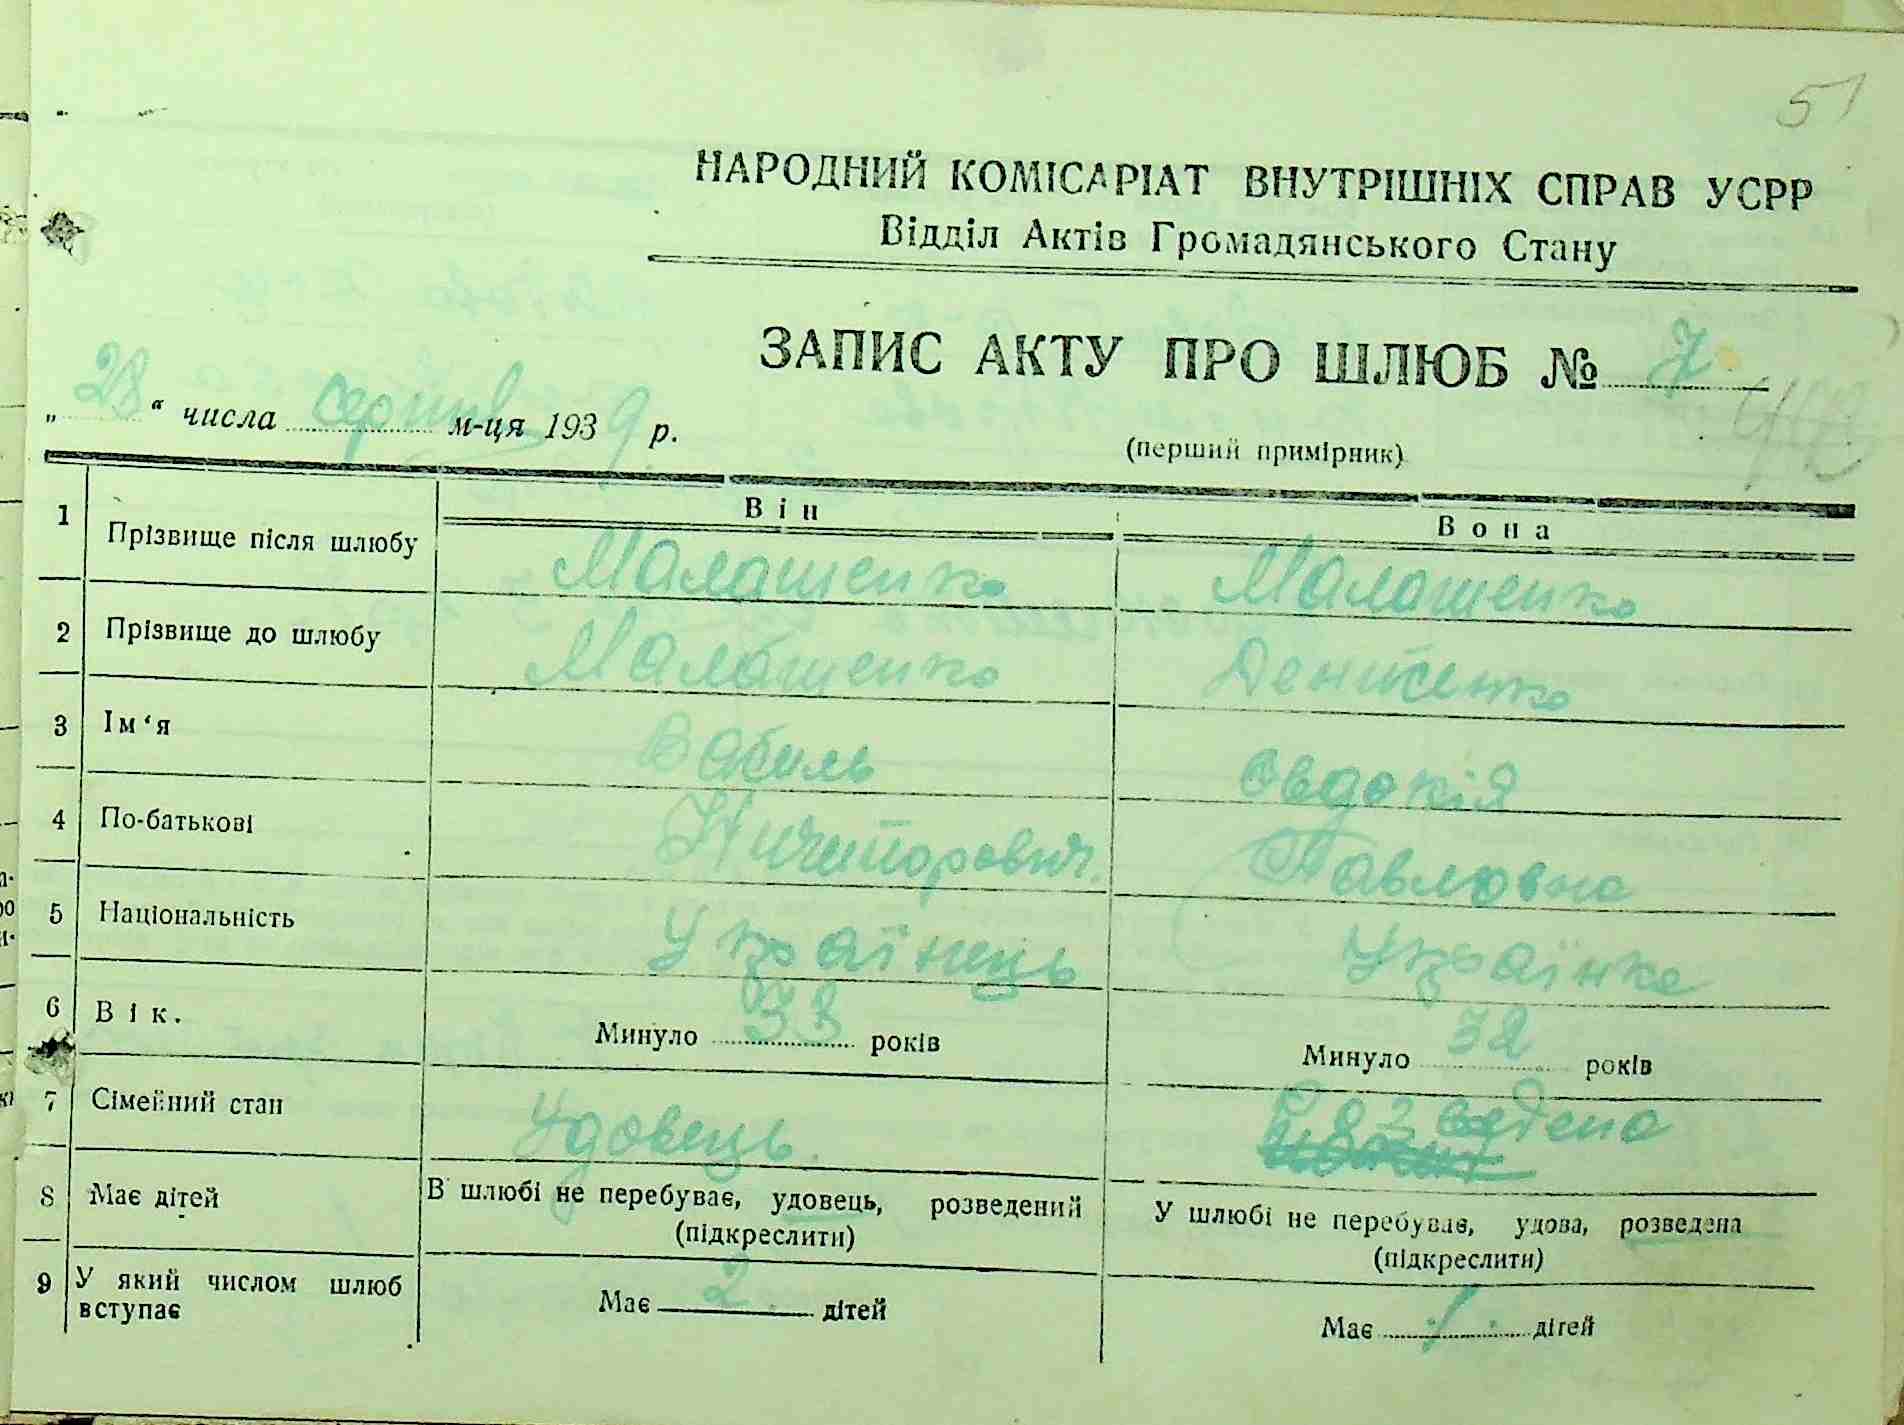 51
НАРОДНИЙ КОМІСАРІАТ ВНУТРІШНІХ СПРАВ УСРР
Відділ Актів Громадянського Стану
ЗАПИС АКТУ ПРО ШЛЮБ № 7
„28“ числа серпня м-ця 1939 р.
(перший примірник)
Він Вона
1 Прізвище після шлюбу Малашенко Малашенко
2 Прізвище до шлюбу Малашенко Денисенко
3 Ім‘я Василь Овдокія
4 По-батькові Ничипорович Павловна
5 Національність Українець Українка
6 Вік. Минуло 33 років Минуло 32 років
7 Сімейний стан Удовець. Розведена
8 Має дітей В шлюбі не перебуває, удовець, розведений У шлюбі не перебуває, удова, розведена
(підкреслити) (підкреслити)
9 У який числом шлюб вступає Має 2 дітей Має 1 дітей